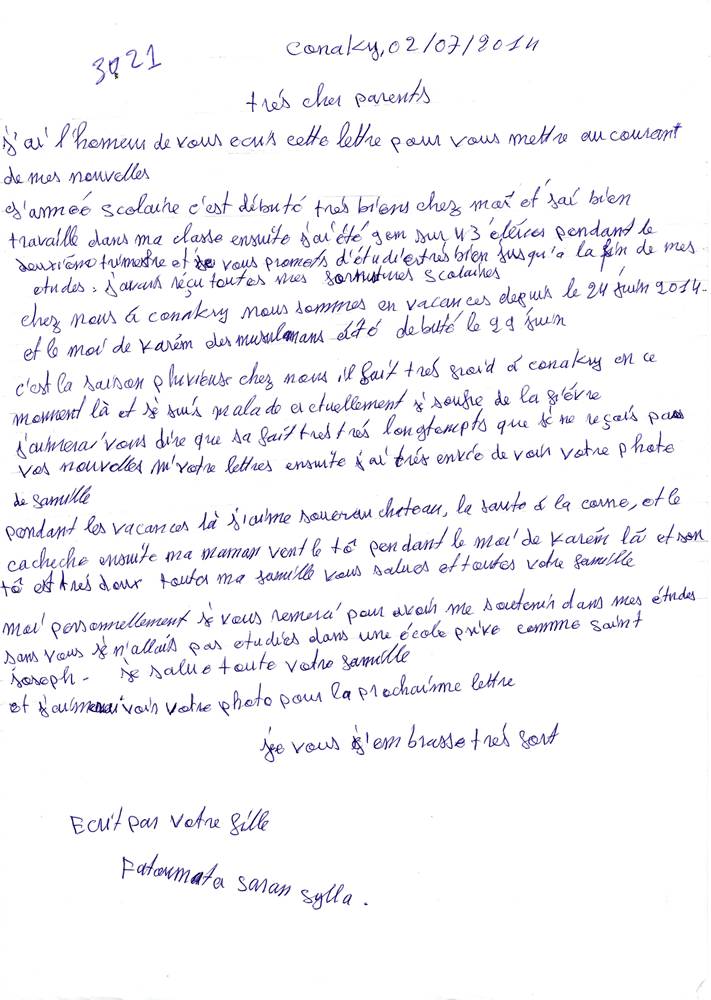 3021
Conakry, 02/07/2014
très cher parents
j'ai l'honneur de vous ecris cette lettre pour vous mettre au courant
de mes nouvelles
L'année scolaire c'est débuté très biens chez moi et j'ai bien
travaille dans ma classe ensuite j'ai été 9em sur 43 éléves pendant le
deuxième trimestre et je vous promets d'étudier très bien jusqu'a la fin de mes
etudes. j'avais réçu toutes mes fornitures scolaires
chez nous à conakry nous sommes en vacances depuis le 24 juin 2014.
et le moi de Karém des musulmans été debuté le 29 juin
c'est la saison pluvieuse chez nous il fait très froid à conakry en ce
moment là et je suis malade actuellement je soufre de la fièvre
j'aimerai vous dire que sa fait tres très longtempts que je ne reçais pas
vos nouvelles ni votre lettres ensuite j'ai très envie de voir votre photo
de famille
pendant les vacances là j'aime jouer au chateau, la saute à la corne, et le
cacheche ensuite ma maman vent le tô pendant le moi de Karém là et son
tô est très doux toutes ma famille vous salues et toutes votre famille
moi personnellement je vous remerci pour avoir me soutenir dans mes études
sans vous je n'allais pas etudies dans une école prive comme saint
joseph - je salue toute votre famille
et j'aimerai voir votre photo pour la prochainne lettre
je vous j'embrasse très fort
Ecrit par votre fille
Fatoumata saran sylla.